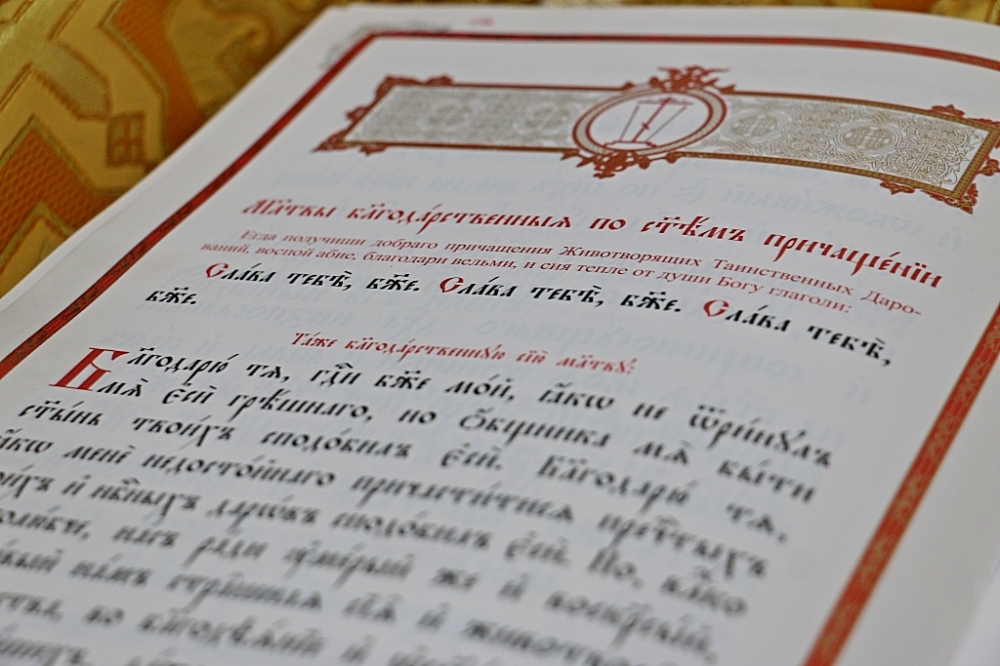 Мл҃твы бл҃года́рственныѧ по ст҃ѣ́мъ причаще́нїи
Егда получиши добраго причащения Животворящих Таинственных Даро-
ваний, воспой абие, благодари вельми, и сия тепле от души Богу глаголи:
Сла́ва тебѣ̀, бж҃е. Сла́ва тебѣ̀, бж҃е. Сла́ва тебѣ̀,
бж҃е.
Та́же бл҃года́рственнꙋю сїю̀ мл҃твꙋ:
Бл҃годарю́ тѧ, гдⷭ҇и бж҃е мо́й, ꙗ҆́кѡ не ѿри́нꙋлъ
мѧ̀ є҆сѝ грѣ́шнаго, но ѻ҆́бщника мѧ̀ бы́ти
ст҃ы́нь твои́хъ сподо́билъ є҆сѝ. Бл҃годарю́ тѧ,
ꙗ҆́кѡ менѐ недосто́йнаго причасти́тисѧ пречⷭ҇тыхъ
и҆ нбⷭ҇ныхъ дарѡ́въ сподо́билъ є҆сѝ. Но, вл҃ко
на́съ ра́ди ᲂу҆ме́рый же и҆ воскр҃сїй,
на́мъ стра̑шнаѧ сїѧ̑ и҆
во бл҃годѣѧ́нїе и҆